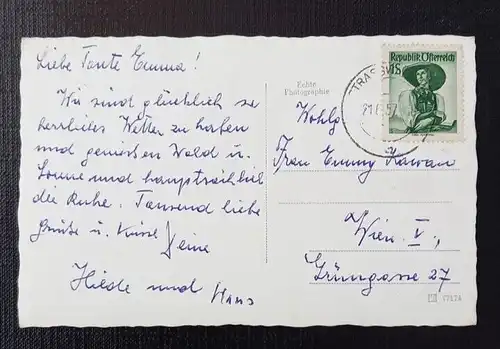 Liebe Tante Emma!
Wir sind glücklich so
herrliches Wetter zu haben
und geniessen Wald u.
Sonne und hauptsächlich
die Ruhe. Tausend liebe
Grüsse u. Küsse Deine
Heide und Hans
Echte
Photographie
Republik Österreich
1S
Wohlg
Frau Emmy
Wien V.,
Grüngasse 27